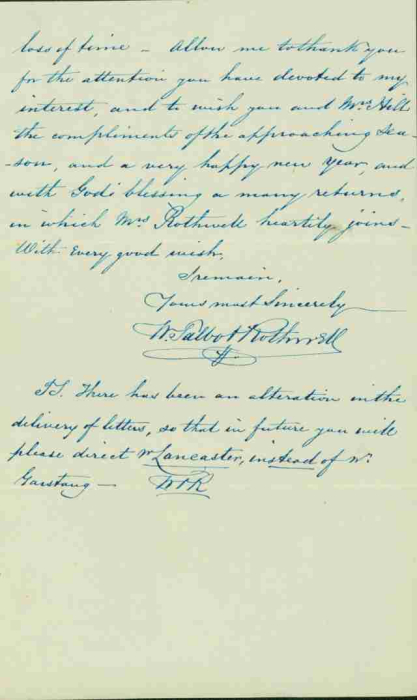 loss of time - Allow me to thank you
for the attention you have devoted to my
interest, and to wish you and Mrs Hill
the compliments of the approaching Sea-
-son, and a very happy new Year, and
with God's blessing a many returns,
in which Mrs Rothwell heartily joins -
With Every good wish,
I remain,
Yours most Sincerely
W. Talbot Rothwell
P.S. There has been an alteration in the
delivery of letters, so that in future you will
please direct nr Lancaster, instead of nr
Garstang -
WTR